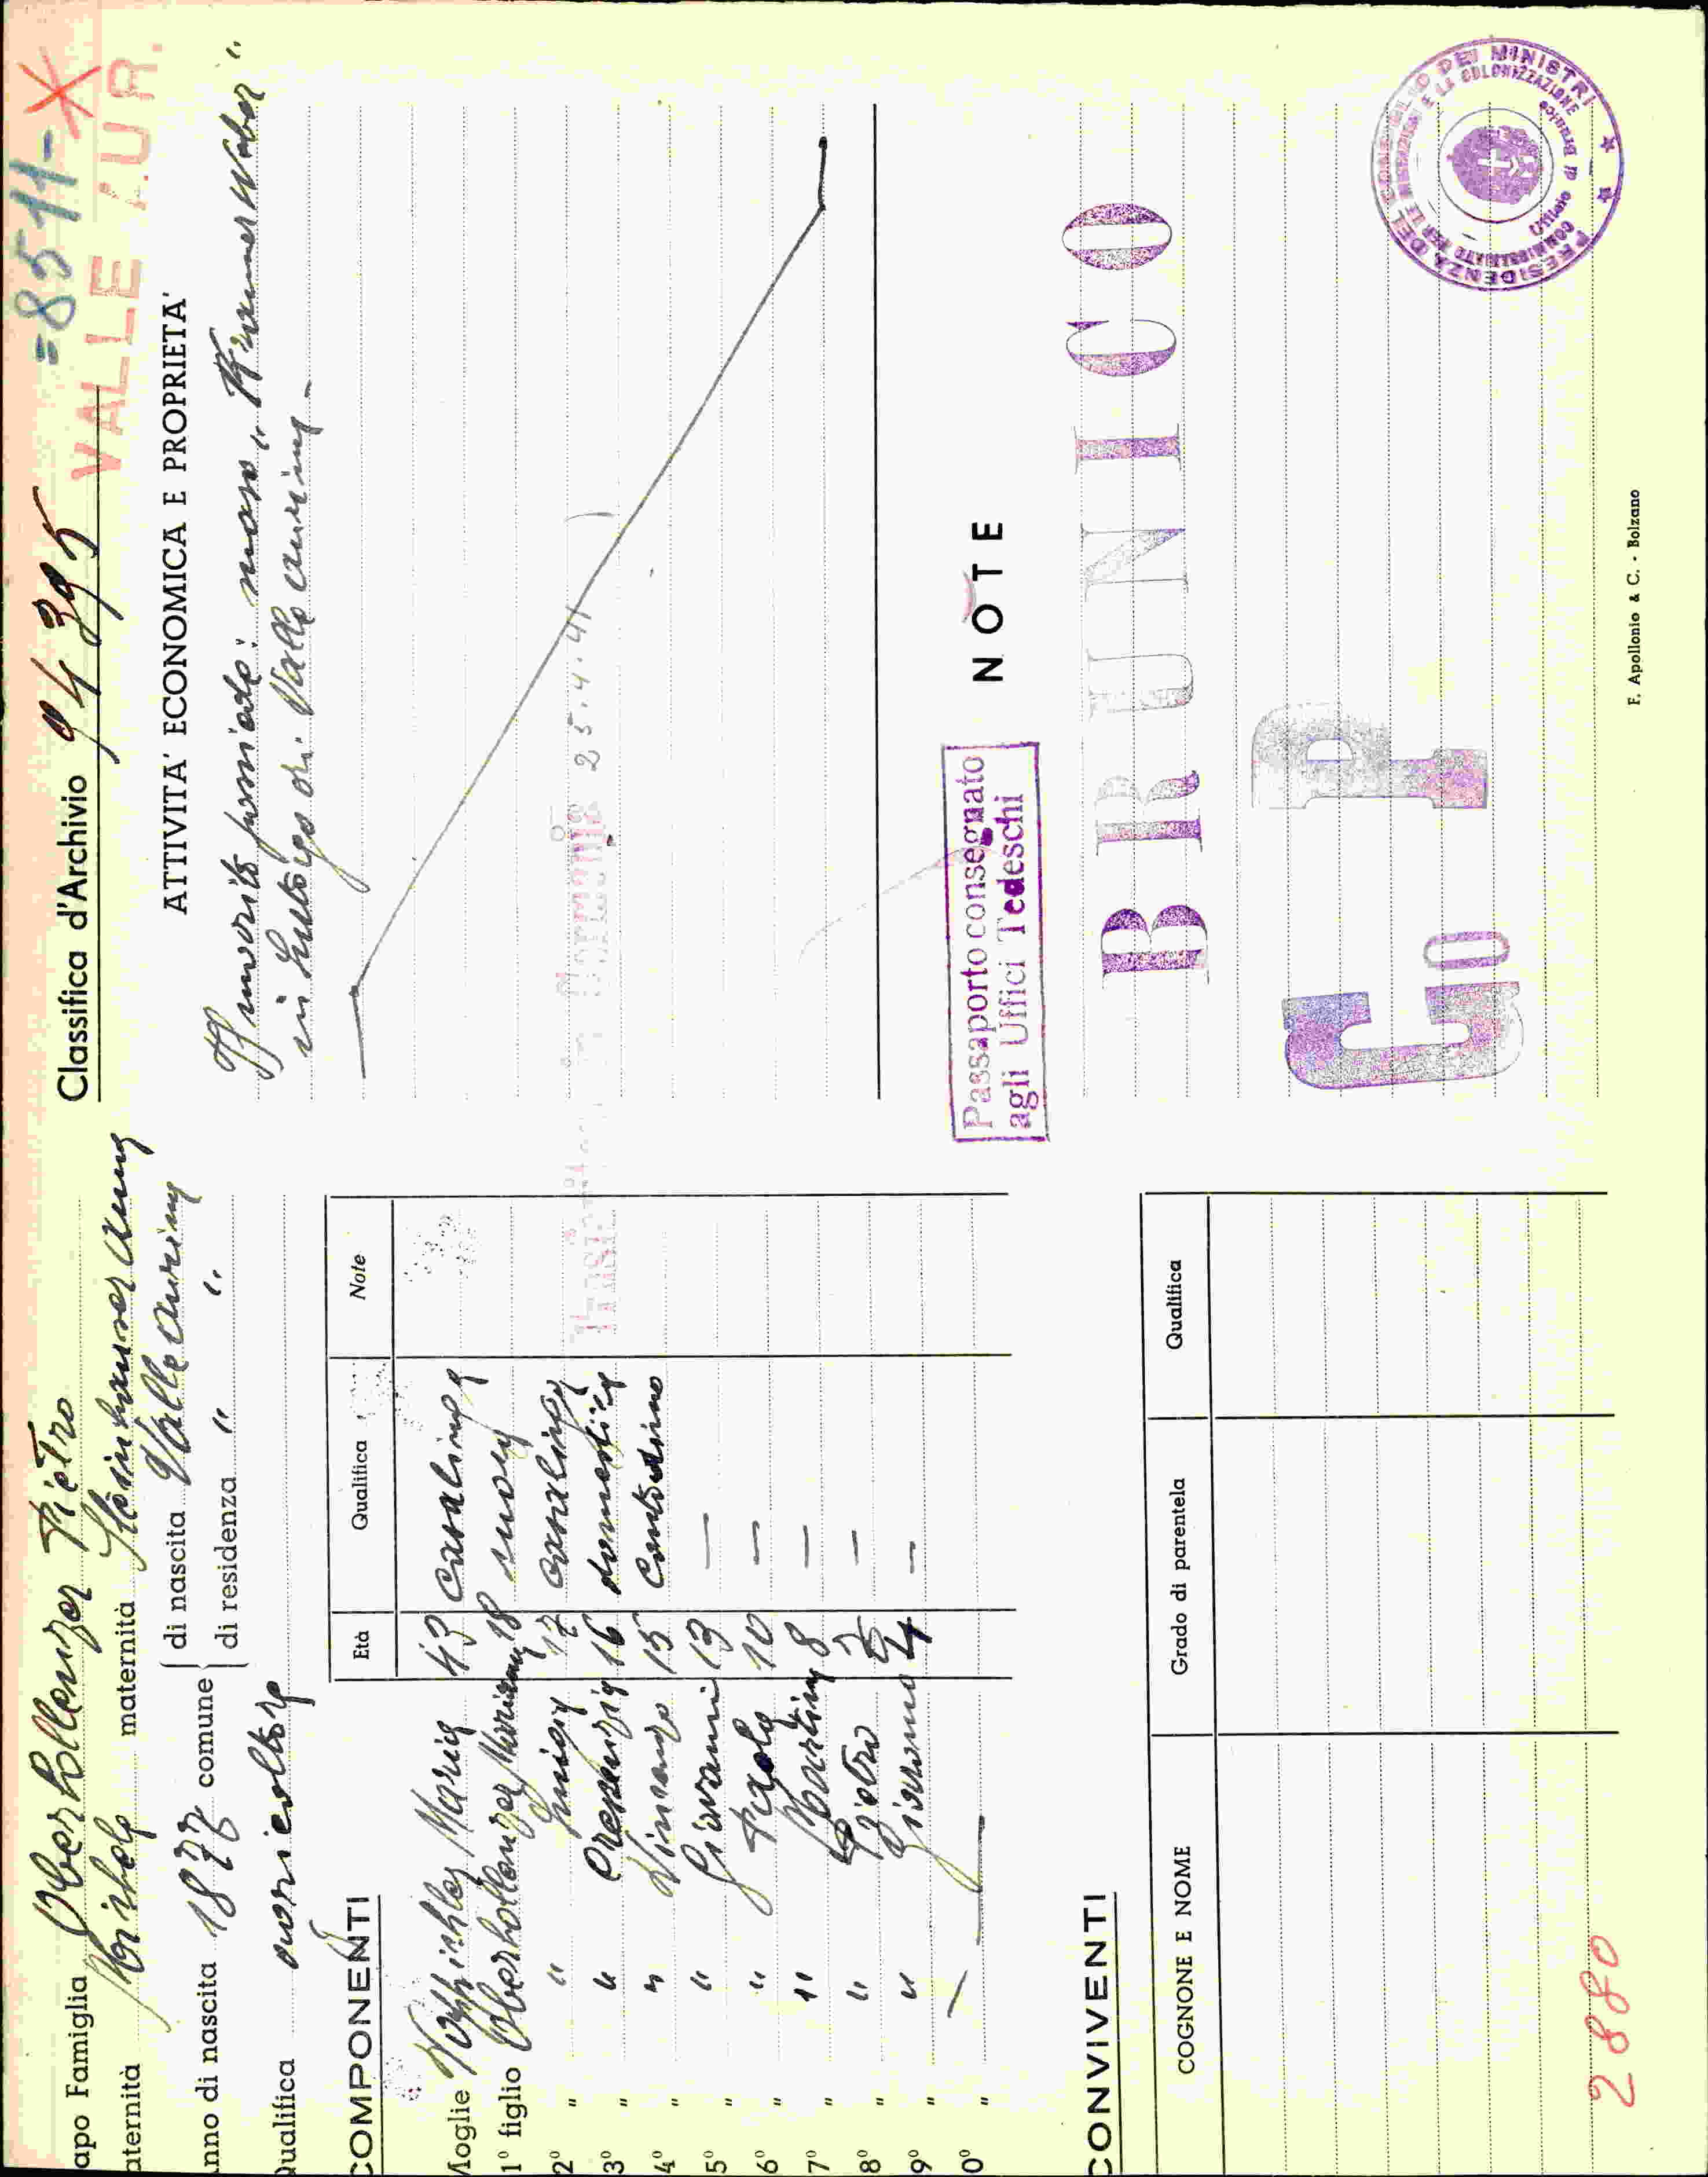 apo Famiglia Oberhollenzer Pietro
aternità Michele maternità Steinhauser Anna
nno di nascita 1877 comune di nascita Valle Aurina
di residenza " "
Qualifica agricoltore
COMPONENTI
Età Qualifica Note
Moglie Maria 43 casalinga
1° figlio Oberhollenzer Marianna 18 suora
2° " " Luigia 17 casalinga
3° " " Crescenzia 16 domestica
4° " " Vincenzo 15 contadino
5° " " Giovanni 13 —
6° " " Paola 10 —
7° " " Martina 8 —
8° " " Pietro —
9° " " Giovanna 4 —
0° "
CONVIVENTI
COGNONE E NOME Grado di parentela Qualifica
2880
=8511-
Classifica d'Archivio 94395
VALLE AUR.
ATTIVITA' ECONOMICA E PROPRIETA'
maso
in Valle Aurina -
in Germania 25.4.41
NOTE
Passaporto consegnato
agli Uffici Tedeschi
BRUNICO
Co P
PRESIDENZA DEL CONSIGLIO DEI MINISTRI
COMMISSARIATO PER LE E LA COLONIZZAZIONE
Ufficio di Brunico
F. Apollonio & C. - Bolzano